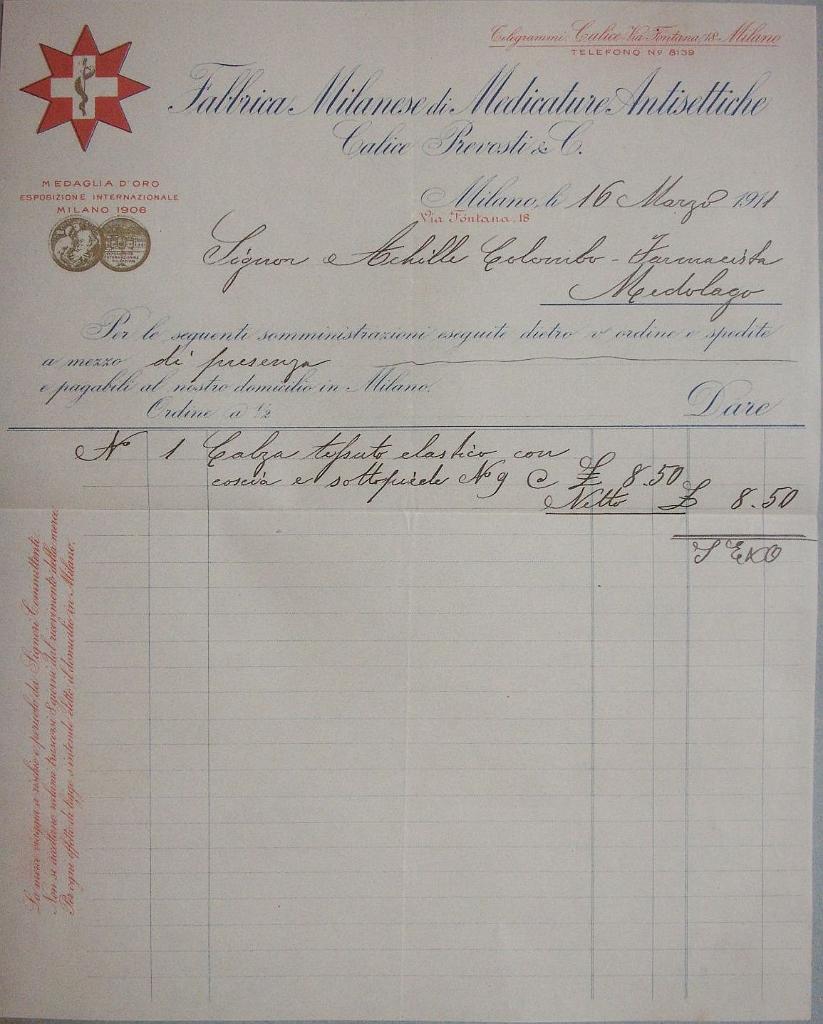 Telegrammi: Calice Via Fontana, 18 - Milano
TELEFONO Nº 8139
Fabbrica Milanese di Medicature Antisettiche
Calice Prevosti & C.
MEDAGLIA D'ORO
ESPOSIZIONE INTERNAZIONALE
MILANO 1906
Milano, li 16 Marzo 1911
Via Fontana, 18
Signor Achille Colombo - Farmacista
Medolago
Per le seguenti somministrazioni eseguite dietro v° ordine e spedite
a mezzo di presenza
e pagabili al nostro domicilio in Milano.
Ordine a ½ Dare
Nº 1 Calza tessuto elastico con
coscia e sottopiede Nº 9 @ £ 8.50
Netto £ 8.50
La merce viaggia a rischio e pericolo dei Signori Committenti.
Non si accettano reclami trascorsi 8 giorni dal ricevimento della merce.
Per ogni effetto di legge s'intende eletto il domicilio in Milano.